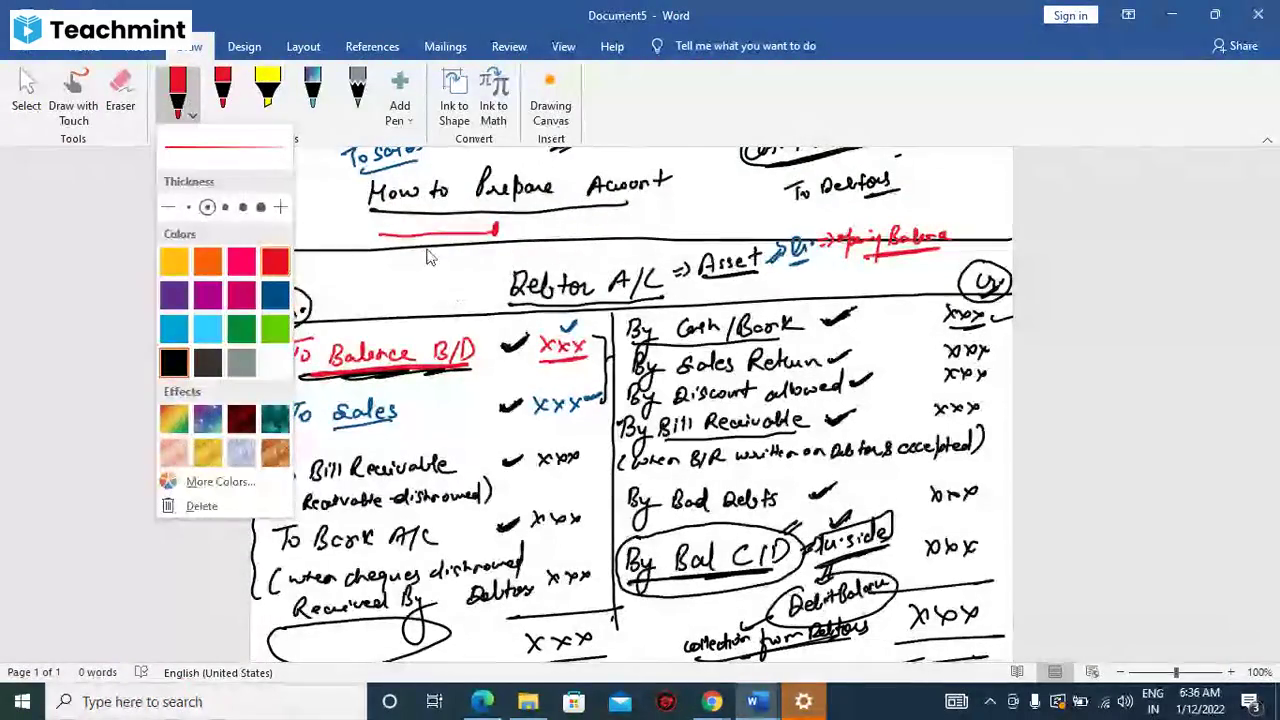 Document5 - Word
Sign in
Teachmint
Draw
Design
Layout
References
Mailings
Review
View
Help
Tell me what you want to do
Share
Select
Draw with Touch
Eraser
Add Pen
Ink to Shape
Ink to Math
Drawing Canvas
Tools
Convert
Insert
Thickness
Colors
Effects
More Colors...
Delete
To Sales
How to Prepare Account
To Debtors
Debtor A/C => Asset => Dr. => opening Balance
Cr
To Balance B/D xxx
To Sales xxx
Bill Receivable xxx
Receivable dishonoured)
To Bank A/C xxx
(when cheques dishonoured
Received By Debtors xxx
xxx
By Cash/Bank xxx
By Sales Return xxx
By Discount allowed xxx
By Bill Receivable xxx
(when B/R written on Debtors & accepted)
By Bad Debts xxx
By Bal C/D xxx
Debit Balance
collection from Debtors
xxx
Page 1 of 1
0 words
English (United States)
100%
Type here to search
ENG
IN
6:36 AM
1/12/2022
3